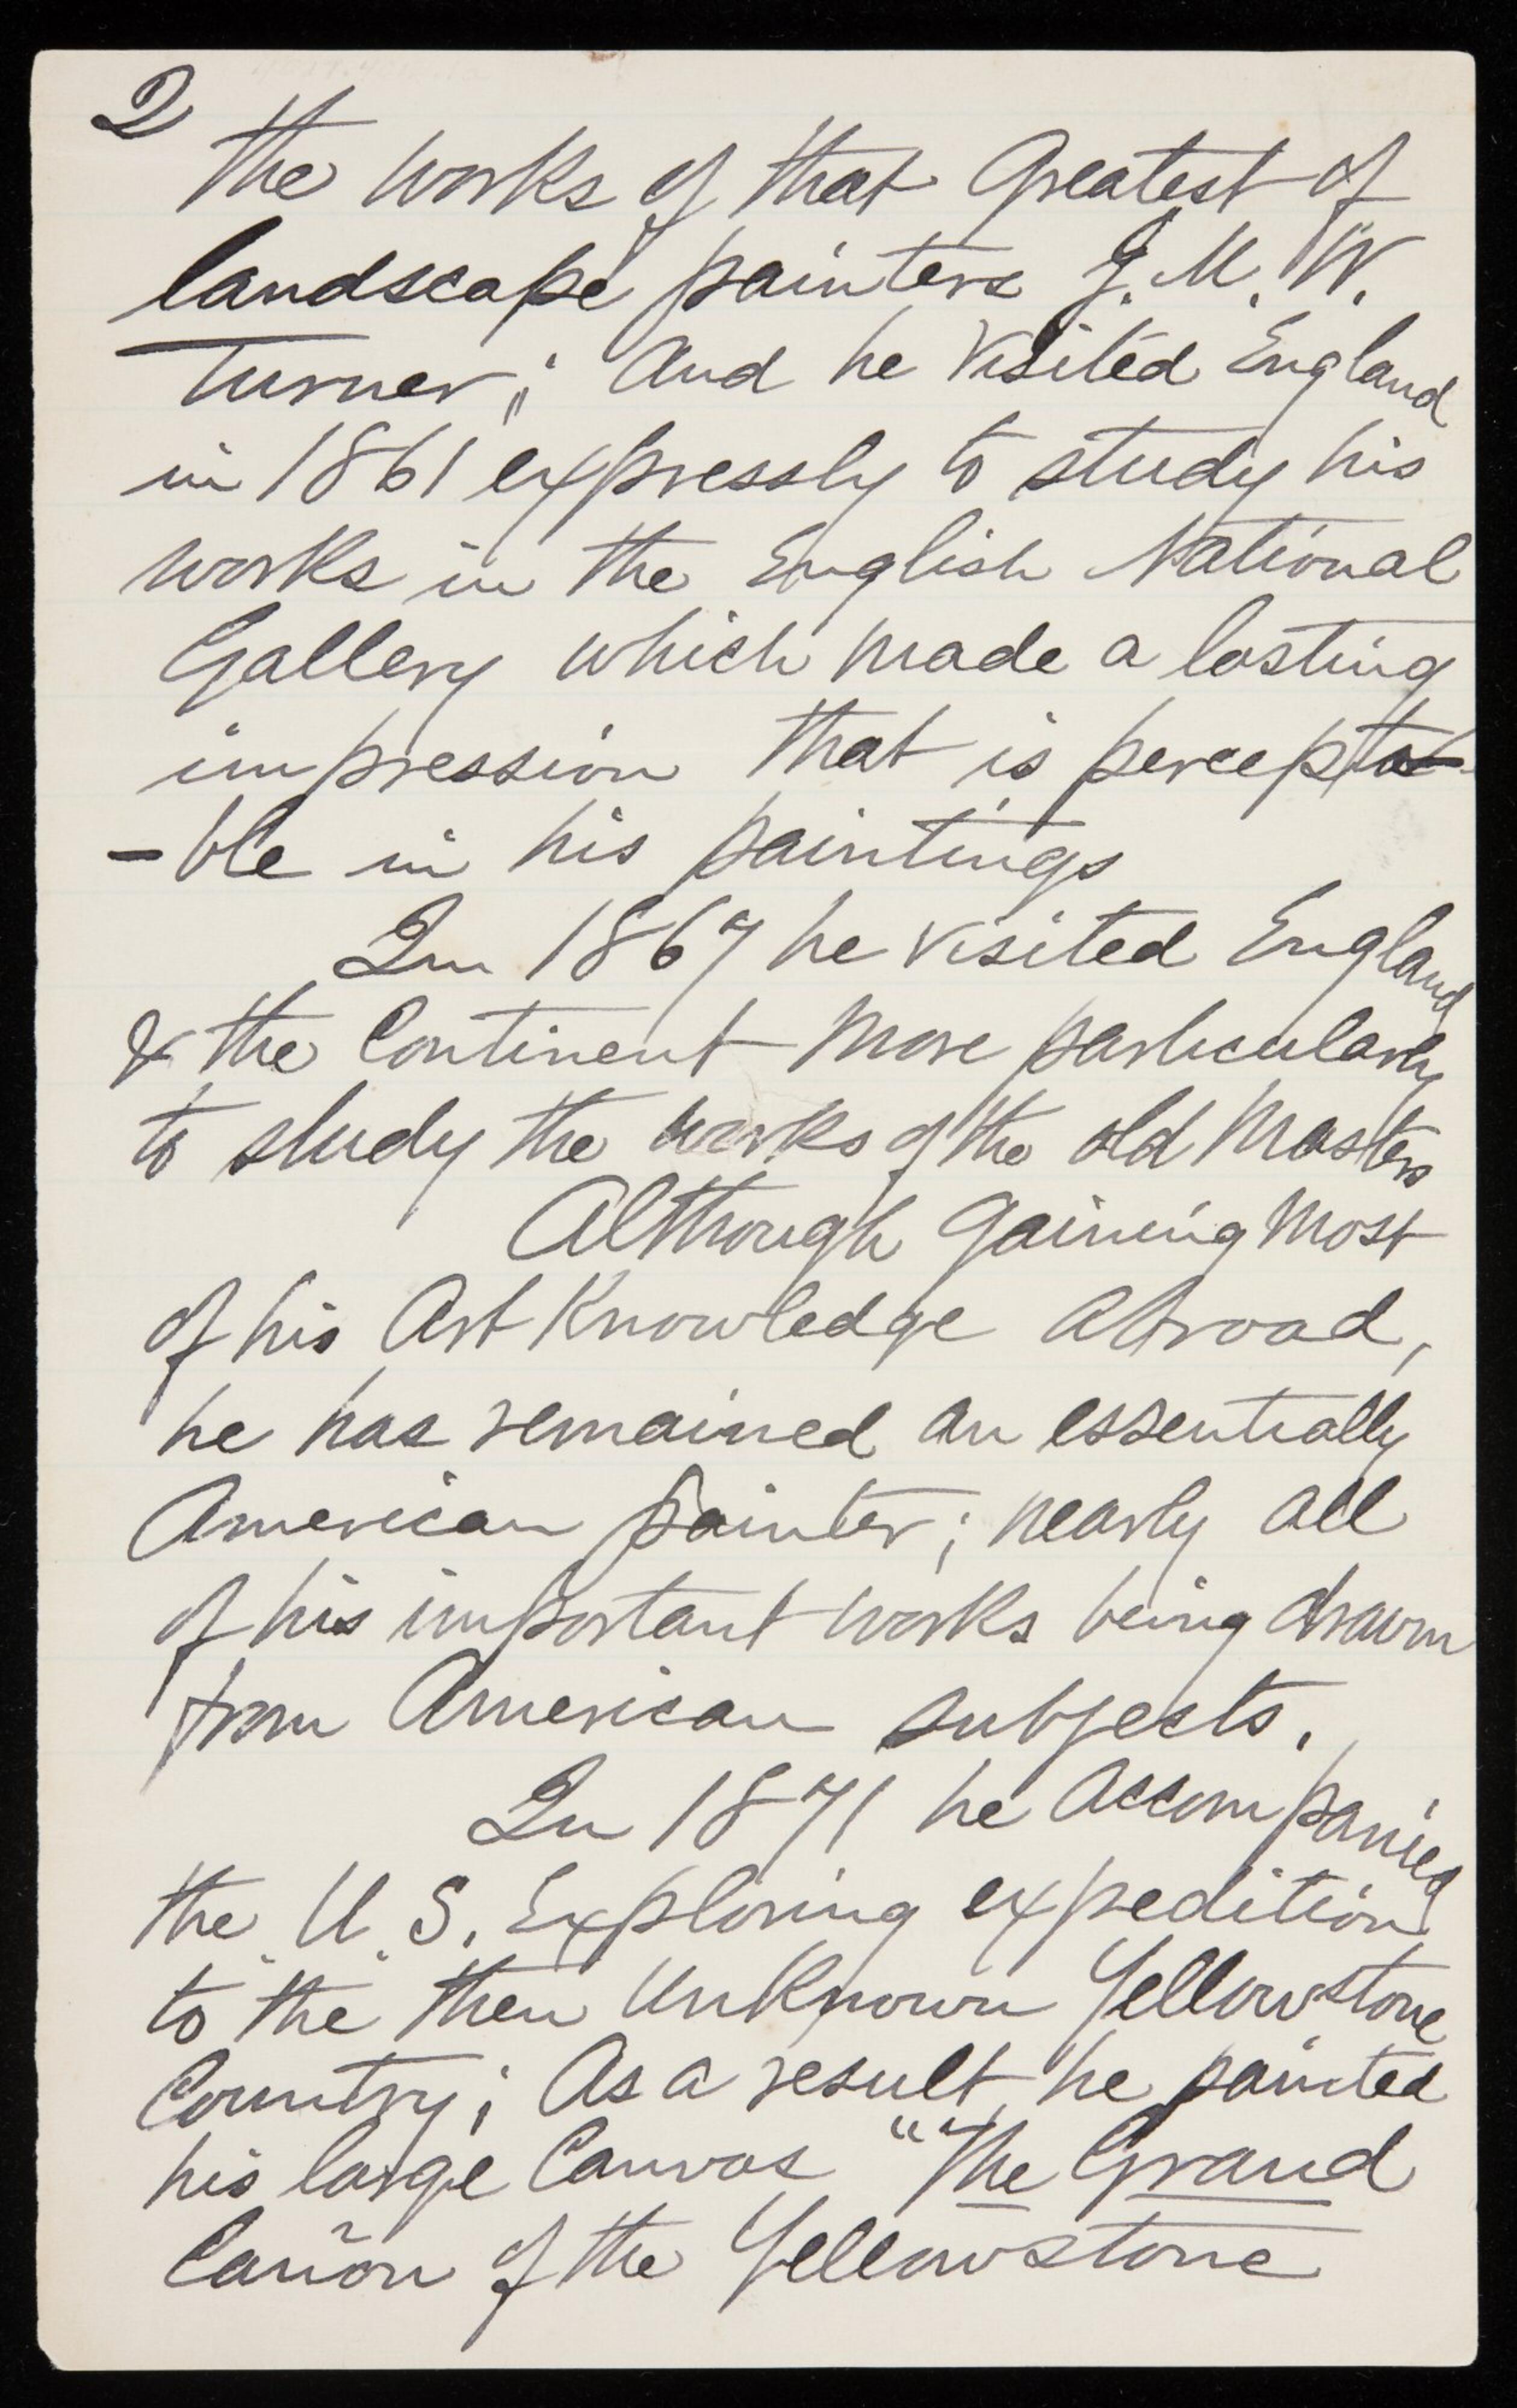 2
the works of that Greatest of
landscape painters J. M. W.
Turner; And he visited England
in 1861 expressly to study his
works in the English National
Gallery which made a lasting
impression that is percepta-
-ble in his paintings
In 1867 he visited England
& the Continent more particularly
to study the works of the old Masters
Although Gaining Most
of his Art Knowledge abroad,
he has remained an essentially
American painter; nearly all
of his important works being drawn
from American subjects.
In 1871 he accompanied
the U. S. Exploring expedition
to the then Unknown Yellowstone
Country; As a result he painted
his large Canvas "The Grand
Cañon of the Yellowstone